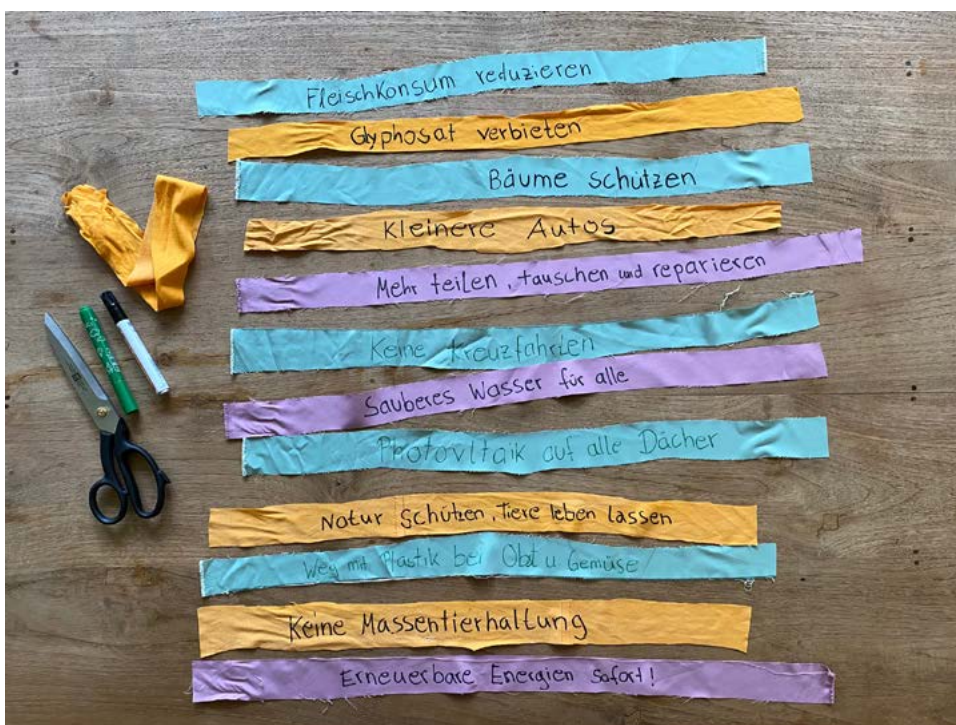 Fleischkonsum reduzieren
Glyphosat verbieten
Bäume schützen
Kleinere Autos
Mehr teilen, tauschen und reparieren
Keine Kreuzfahrten
Sauberes Wasser für alle
Photovltaik auf alle Dächer
Natur schützen, Tiere leben lassen
Weg mit Plastik bei Obst u Gemüse
Keine Massentierhaltung
Erneuerbare Energien sofort!